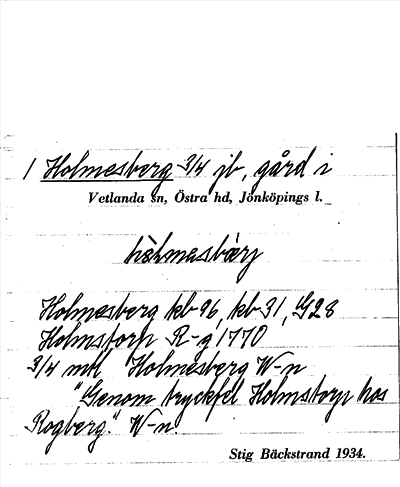 1 Holmesberg 3/4 jb, gård i
Vetlanda sn, Östra hd, Jönköpings l.
hòlmasbærj
Holmesberg kb 96, kb 31, G28
Holmstorp R-g 1770
3/4 mtl Holmesberg W-n
"Genom tryckfel Holmstorp hos
Rogberg." W-n.
Stig Bäckstrand 1934.